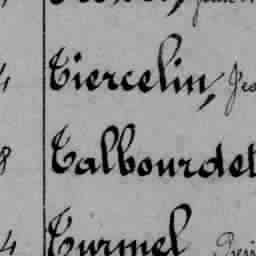 4 Tiercelin,
8 Talbourdet
4 Turmel